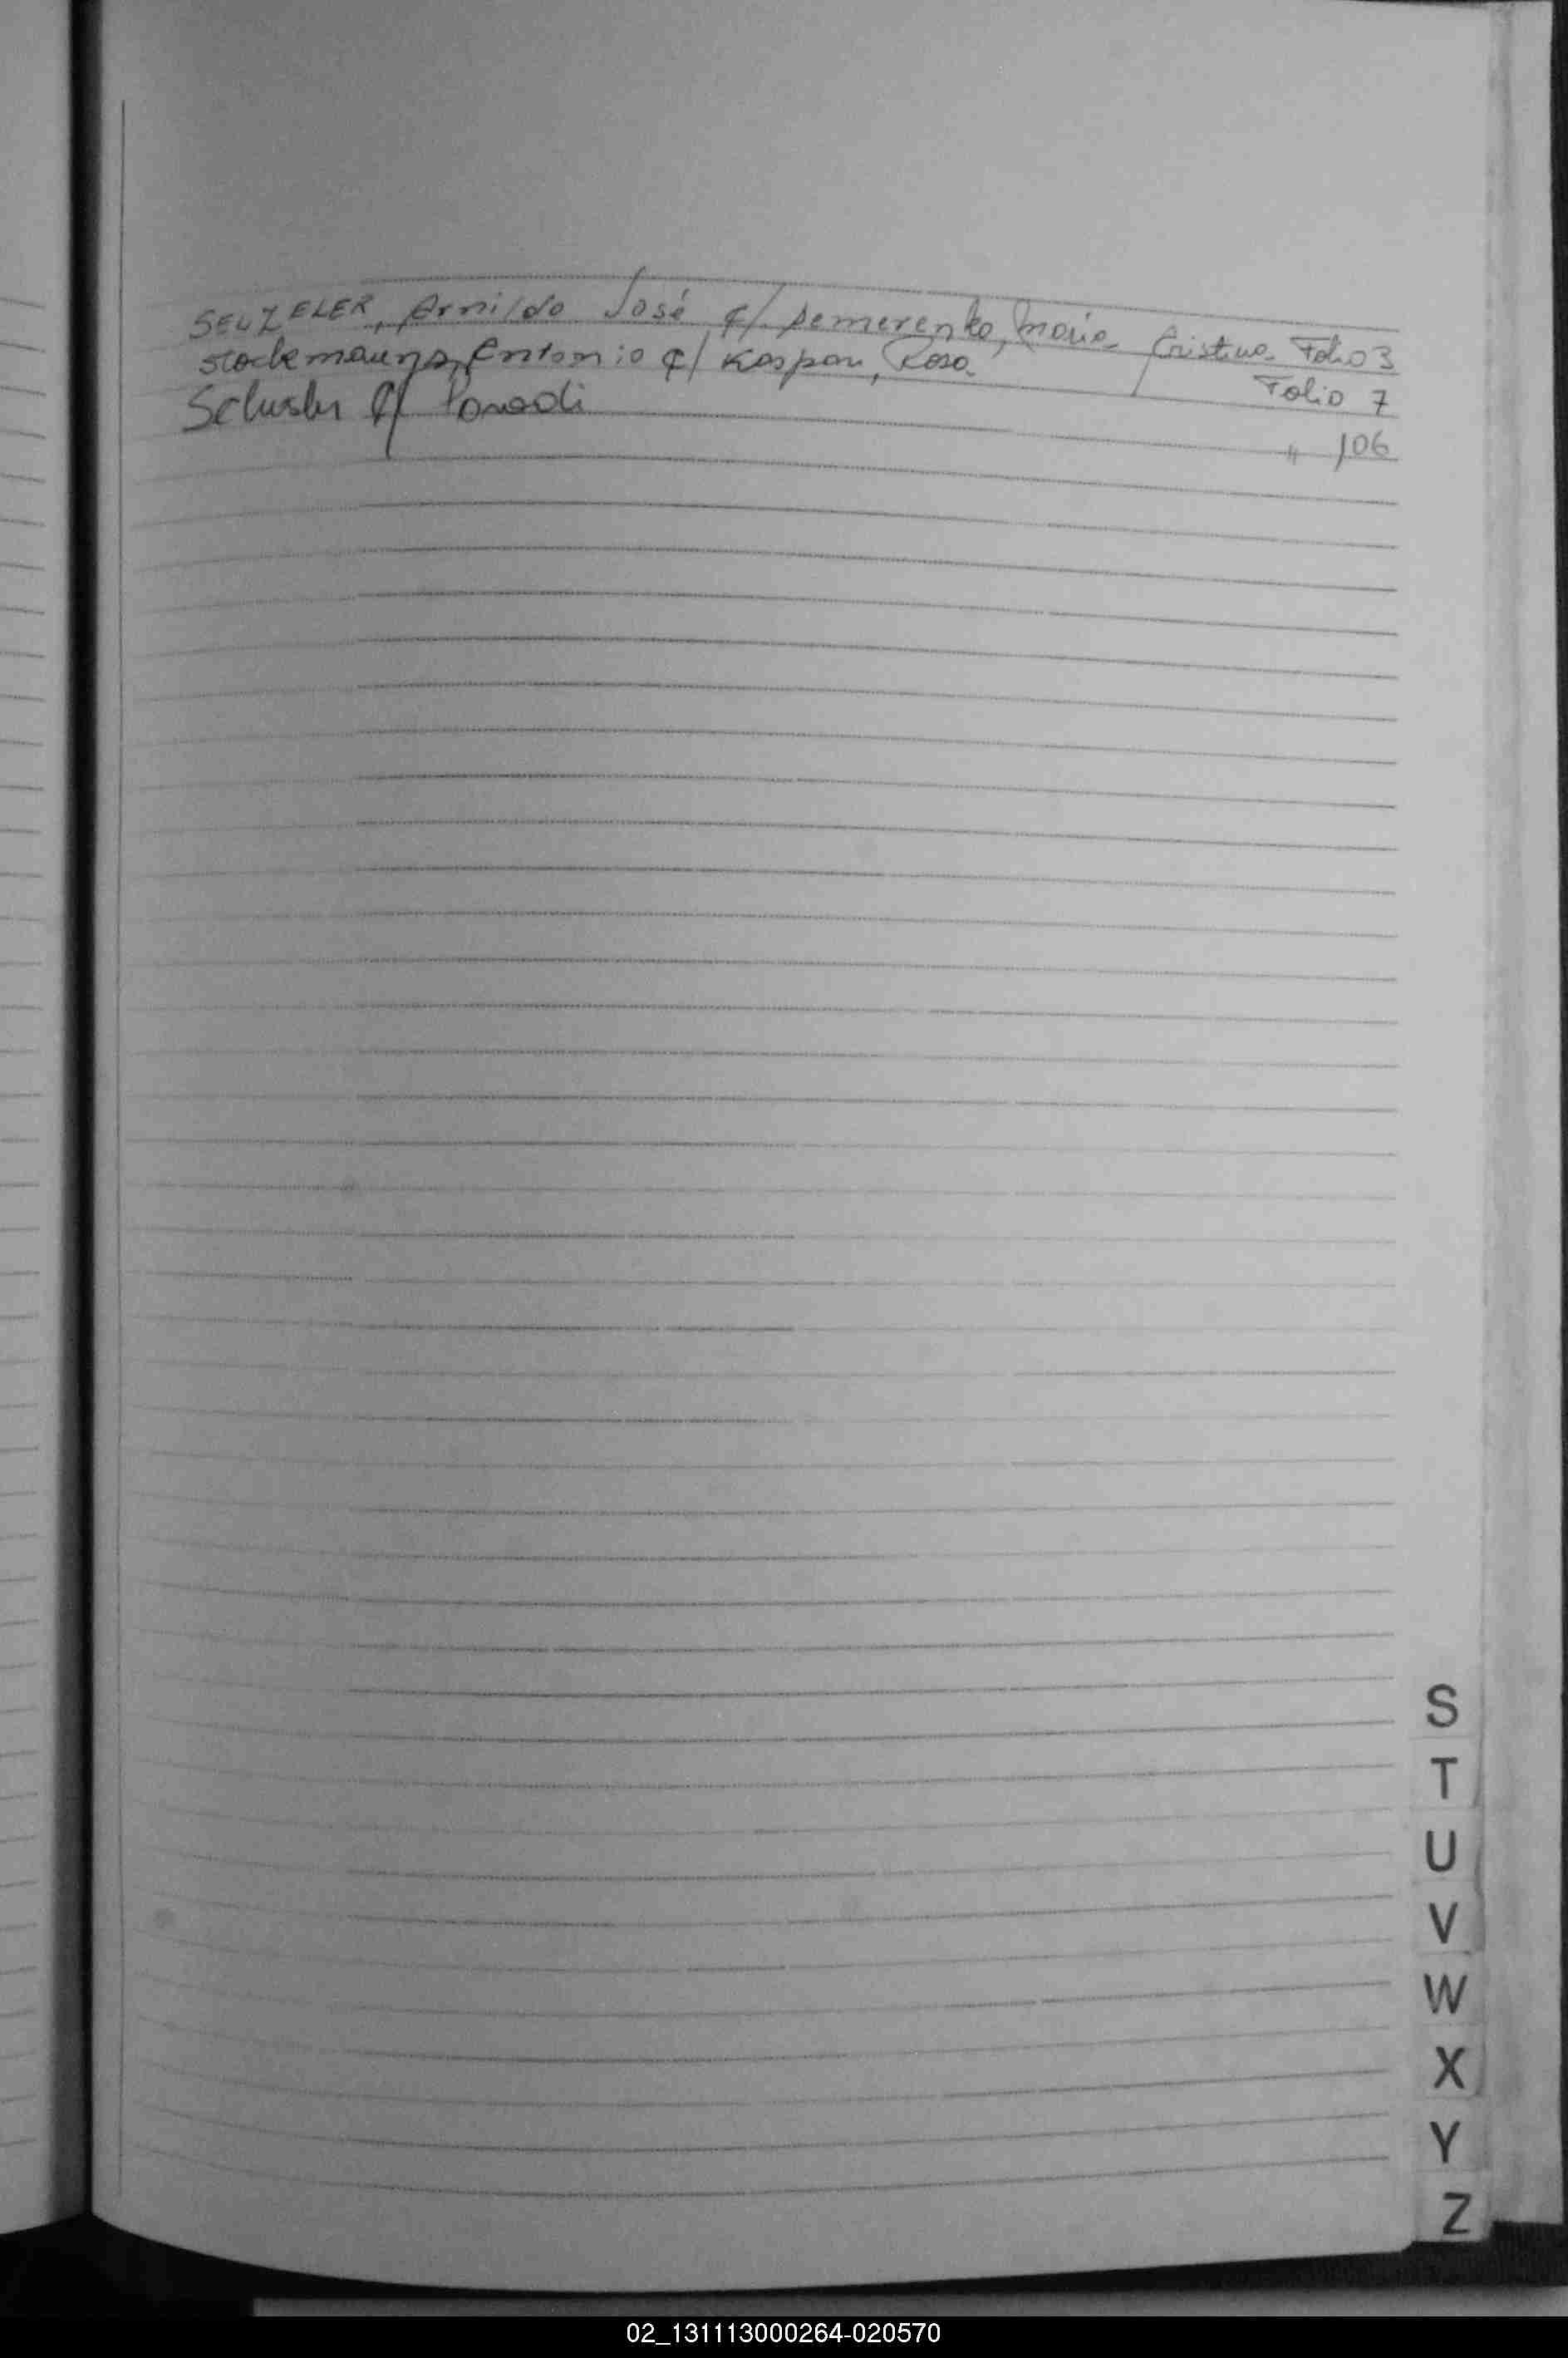 SEUZELER, Arnildo José c/ Semerenko, María Cristina Folio 3
Stockemanns, Antonio c/ Kaspar, Rosa Folio 7
Schuster c/ " 106
S
T
U
V
W
X
Y
Z
02_131113000264-020570